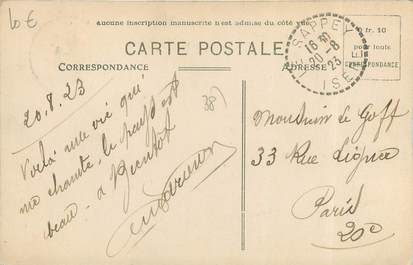 10 €
aucune inscription manuscrite n'est admise du côté vue
CARTE POSTALE
CORRESPONDANCE
ADRESSE
LE SAPPEY
16 30
20-8
23
ISERE
0 fr. 10
pour toute
CORRESPONDANCE
38
20.8.23
Voilà une vie qui
me chante, le pays est
beau. à Bientôt
Monsieur le Goff
33 Rue
Paris
20e